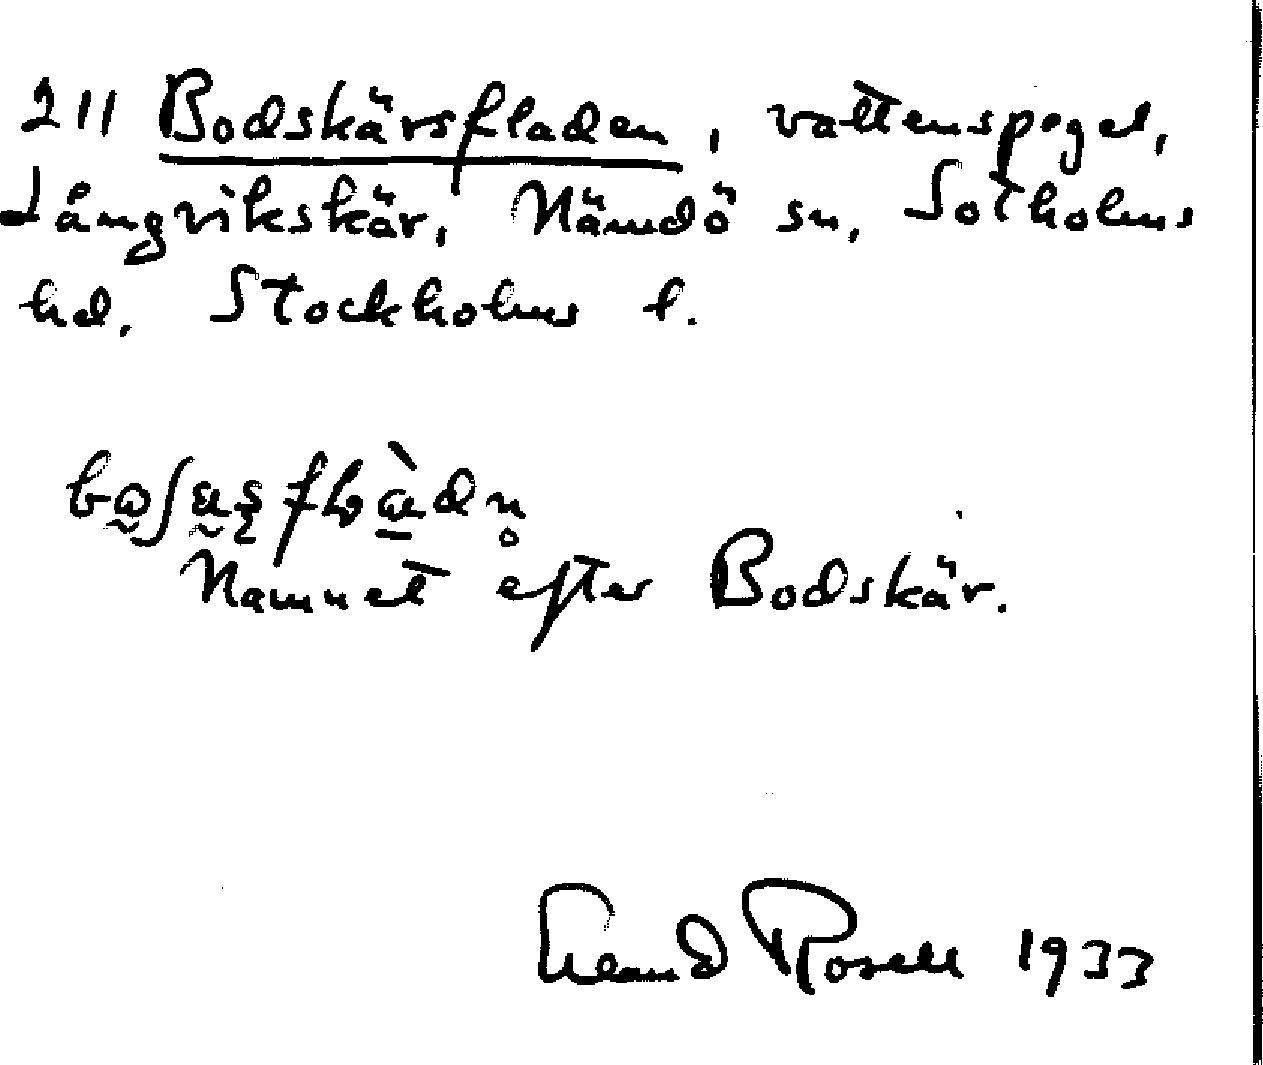 211 Bodskärsfladen, vattenspegel,
Långvikskär, Nämdö sn, Sotholms
hd. Stockholms l.
Namnet efter Bodskär.
Erland Rosell 1933